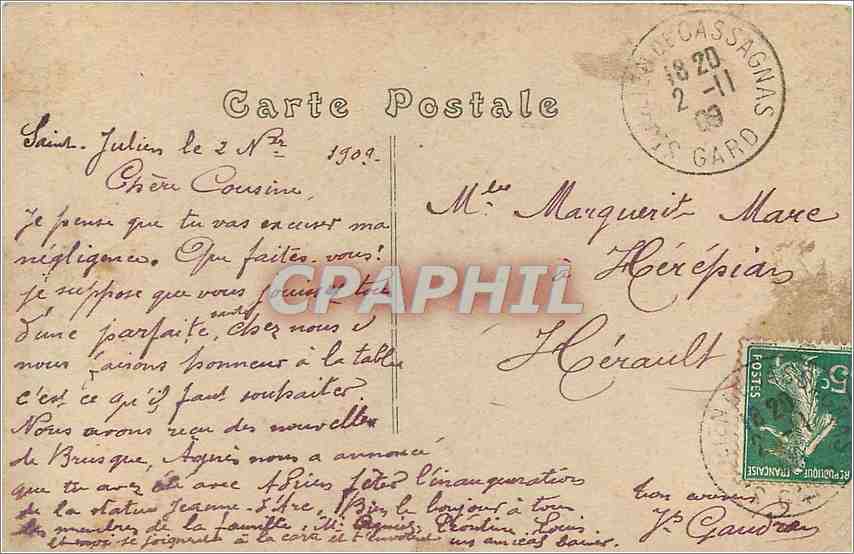 Carte Postale
ST JULIEN DE CASSAGNAS
18 20
2 -11
09
GARD
Saint-Julien le 2 Nbre 1909.
Chère Cousine
je pense que tu vas excuser ma
négligence. Que faites-vous!
je suppose que vous jouissez
d'une parfaite santé, chez nous
nous faisons honneur à la table
c'est ce qu'il faut souhaiter.
Nous avons reçu des nouvelles
de Brusque, Agnès nous a annoncé
que tu avez été avec fêter l'inauguration
de la statue Jeanne-d'Arc, Bien le bonjour à tous
les membres de la famille, Louis
se joignent à la carte et t'envoient
ton cousin
Jh Gaudran
Mlle Marguerit Marc
à Hérépian
Hérault
CPAPHIL
POSTES
5c
REPUBLIQUE FRANÇAISE